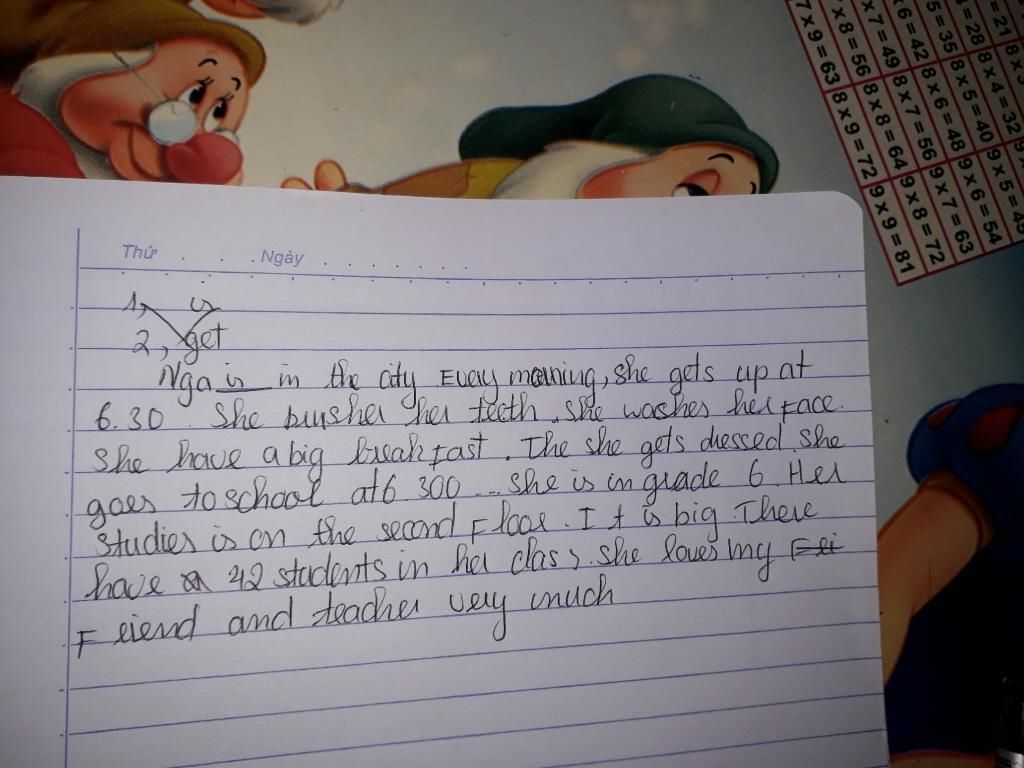 7 x 9 = 63 8 x 9 = 72 9 x 9 = 81
7 x 8 = 56 8 x 8 = 64 9 x 8 = 72
x 7 = 49 8 x 7 = 56 9 x 7 = 63
x 6 = 42 8 x 6 = 48 9 x 6 = 54
5 = 35 8 x 5 = 40 9 x 5 = 45
= 28 8 x 4 = 32
= 21
Thứ . . . . Ngày . . . . . . .
1, is
2, get
Nga is in the city Every morning, she gets up at
6.30 . She brushes her teeth. she washes her face.
She have a big breakfast. The she gets dressed she
goes to school at 6 300 ... she is in grade 6. Her
studies is on the second Floor. It is big There
have 42 students in her class. she loves my Fri
Friend and teacher very much